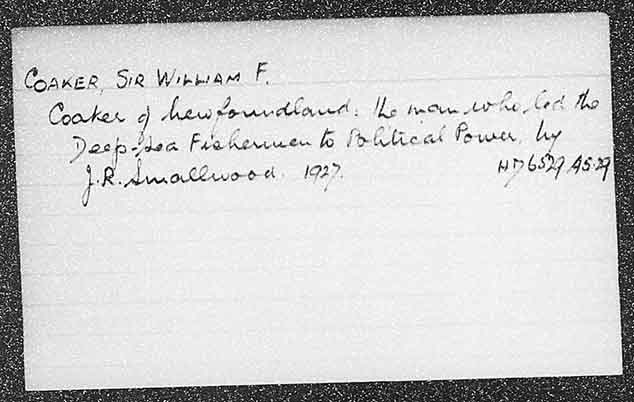 COAKER, SIR WILLIAM F.
Coaker of Newfoundland: the man who led the
Deep-sea Fishermen to Political Power, by
J.R. Smallwood. 1927. HD6529 A5 29